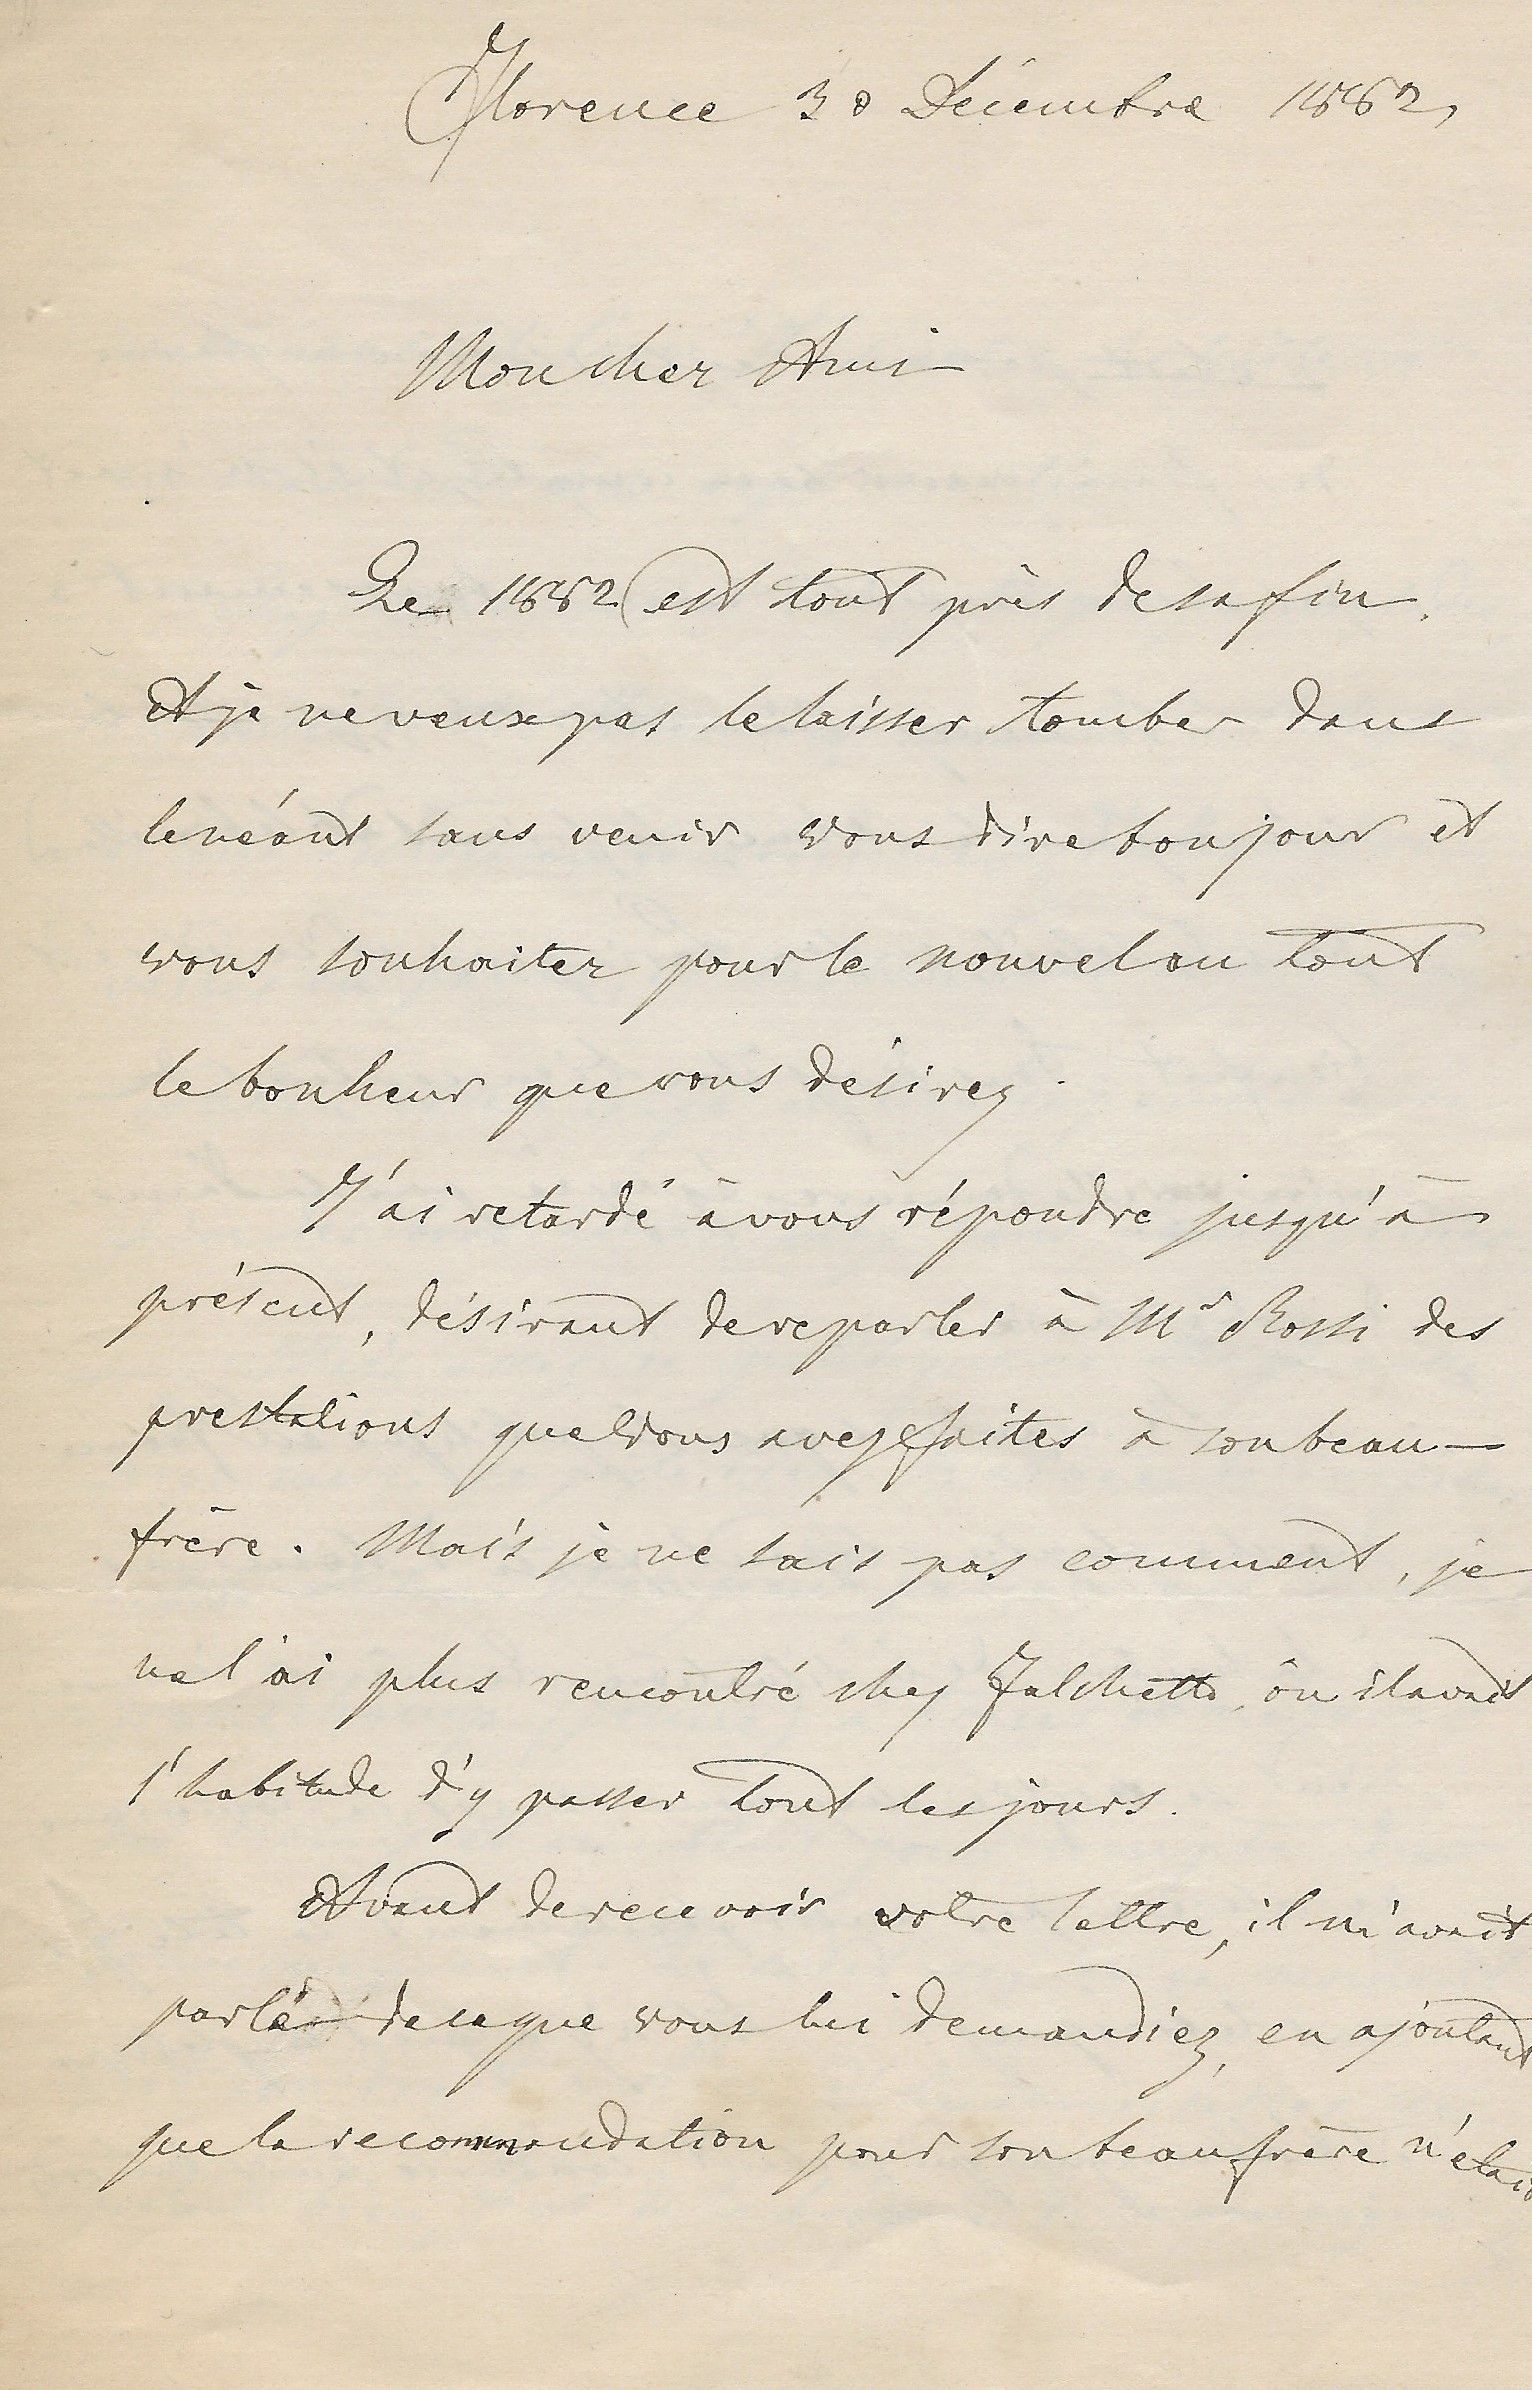 Florence 30 Décembre 1882,
Mon cher Ami
Le 1882 est tout près de sa fin.
Et je ne veux pas le laisser tomber dans
le néant sans venir vous dire bonjour et
vous souhaiter pour le nouvel an tout
le bonheur que vous désirez.
J'ai retardé à vous répondre jusqu'à
présent, désirant de reparler à Mr Rossi des
prestations que vous avez faites à son beau-
frère. Mais je ne sais pas comment, je
ne l'ai plus rencontré chez Falchetto, où il avait
l'habitude d'y passer tout les jours.
Avant de recevoir votre lettre, il m'avait
parlé de ce que vous lui demandiez, en ajoutant
que la recommandation pour son beau frère n'etait